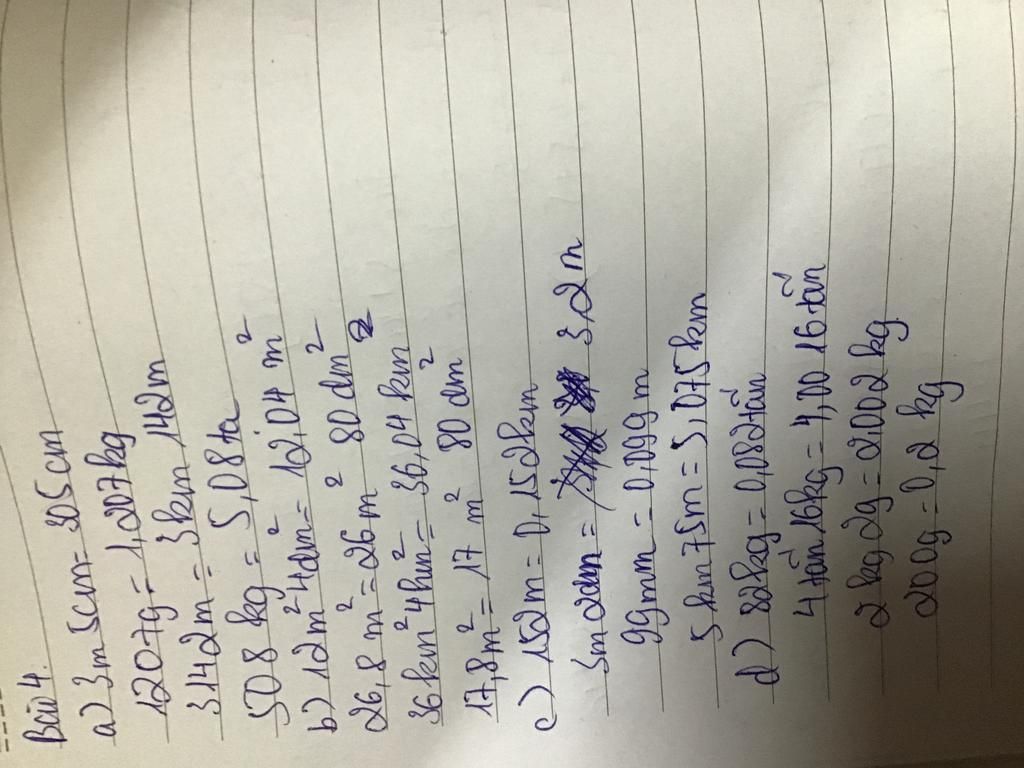 Bài 4.
a) 3m 5cm = 305 cm
1207g = 1,207kg
3142m = 3km 142m
508 kg = 5,08 tạ
b) 12m² 4dm² = 12,04 m²
26,8 m² = 26 m² 80 dm²
36km² 4hm² = 36,04 km²
17,8m² = 17 m² 80 dm²
c) 152m = 0,152km
3m 2dm = 3,2m
99mm = 0,099 m
5km 75m = 5,075km
d) 82kg = 0,082tấn
4tấn 16kg = 4,0016tấn
2kg 2g = 2,002kg
200g = 0,2 kg